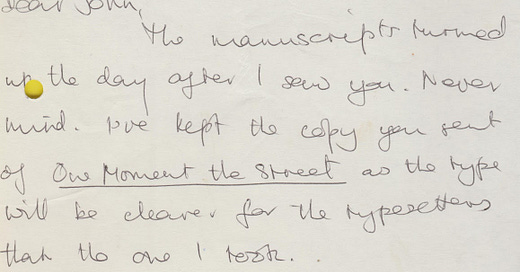 Dear John,
The manuscripts turned
up the day after I saw you. Never
mind. I've kept the copy you sent
of One Moment the Street as the type
will be clearer for the typesetters
than the one I took.